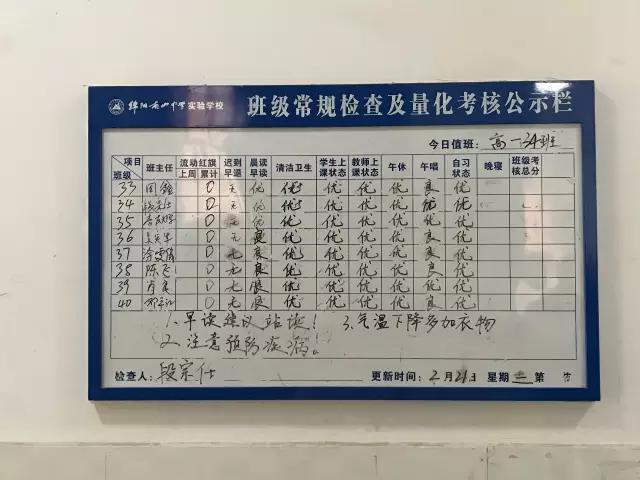 绵阳南山中学实验学校 班级常规检查及量化考核公示栏
今日值班：高一34班
项目 班级 班主任 流动红旗 上周 累计 迟到早退 晨读早读 清洁卫生 学生上课状态 教师上课状态 午休 午唱 自习状态 晚寝 班级考核总分
33 0 无 优 优 优 优 优 良 优
34 0 无 优 优 优 优 优 优 优
35 0 无 优 优 优 优 优 良 优
36 0 无 良 优 优 优 优 良 优
37 0 无 良 优 优 优 优 良 优
38 陈飞 0 无 良 优 优 优 优 良 优
39 0 无 良 优 优 优 优 良 优
40 0 无 良 优 优 优 优 良 优
1、早读建议站读！ 3、气温下降多加衣物
2、注意预防疾病！
检查人：段宗仕 更新时间：2月21日 星期 第